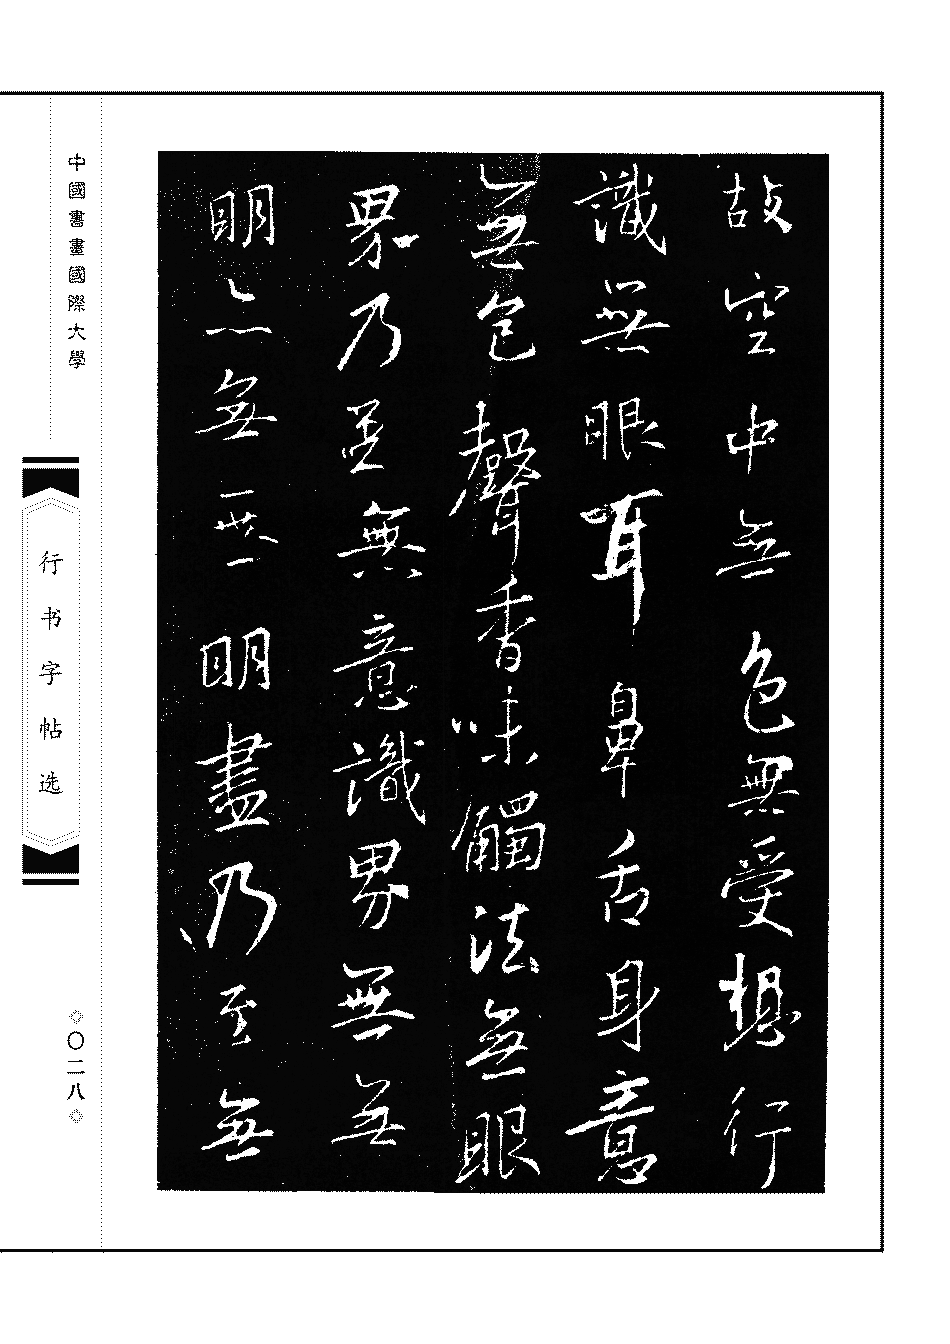 故空中無色無受想行
識無眼耳鼻舌身意
無色聲香味觸法無眼
界乃至無意識界無無
明亦無無明盡乃至無
中國書畫國際大學
行书字帖选
〇二八